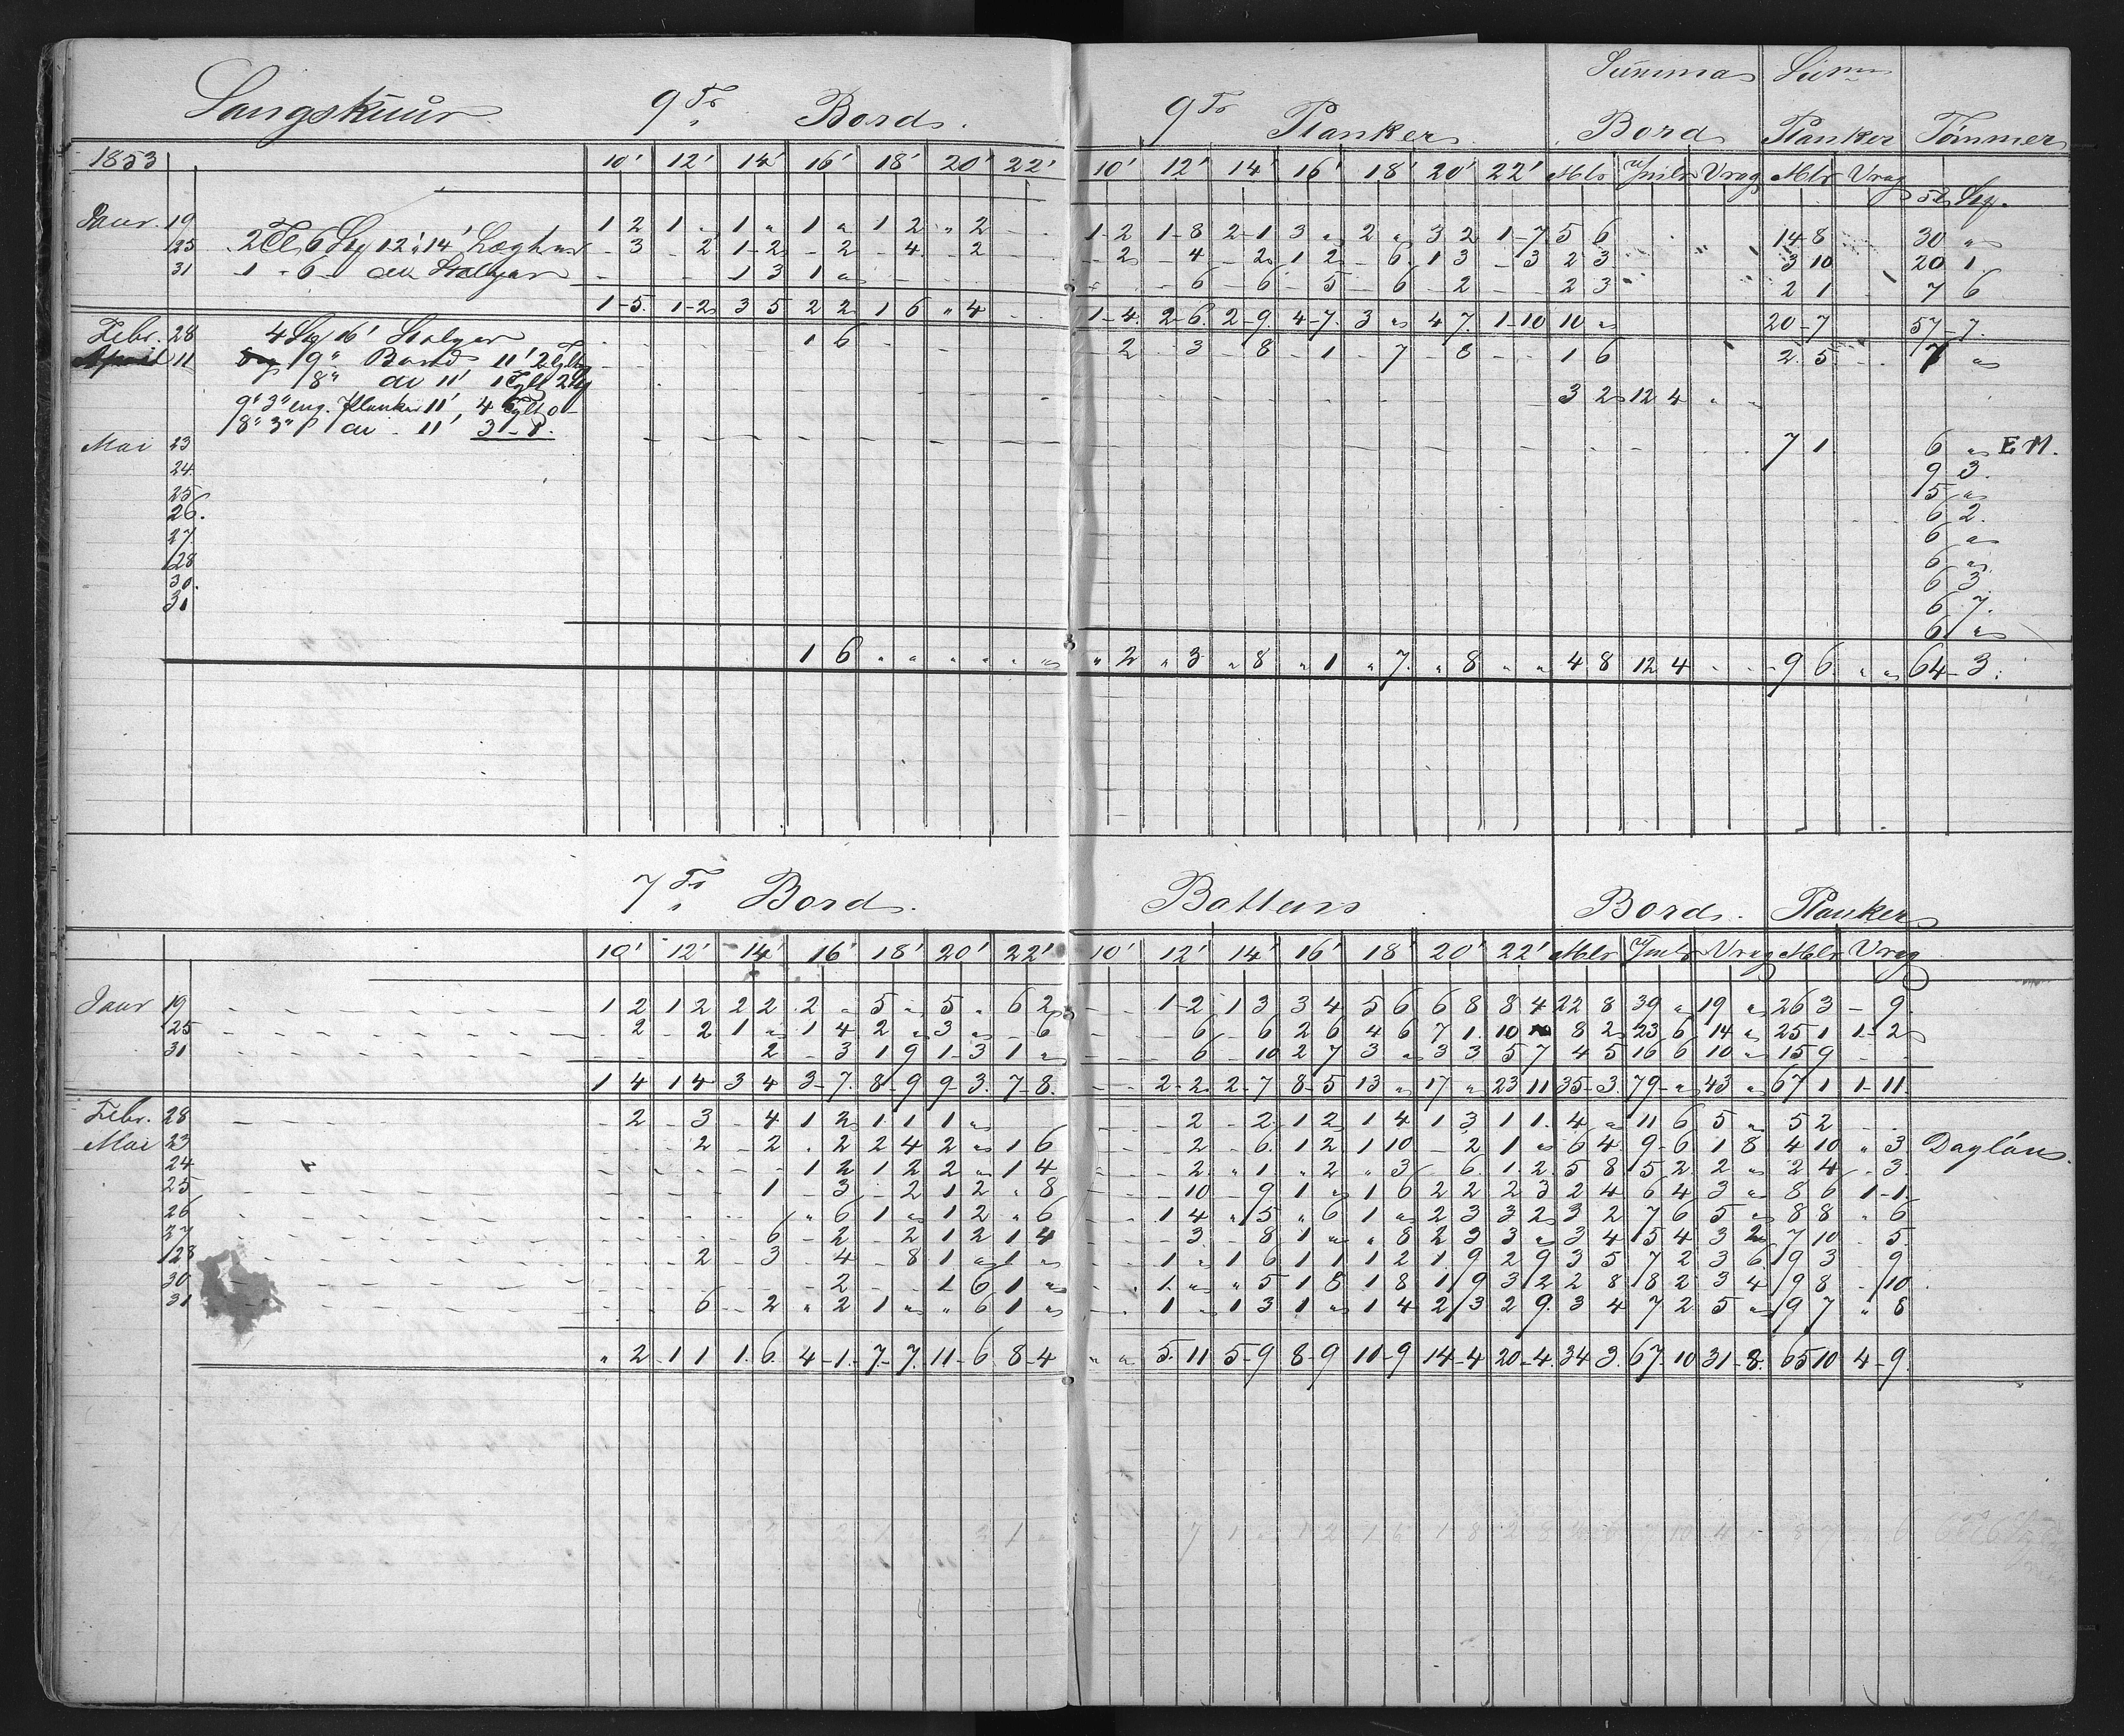 Langskuur. 9 Ts Bord. 9 Ts Planker Summa Bord Sum Planker Tømmer
1853 10' 12' 14' 16' 18' 20' 22' 10' 12' 14' 16' 18' 20' 22' Mlr Jmlr Vrag Mlr Vrag
Tl Stp.
Janr. 19 1 2 1 " 1 " 1 " 1 2 " 2 - - 1-2 1-8 2-1 3 " 2 " 3 2 1-7 5 6 14 8 30 "
25 2 Tl 6 Stp 12' á 14' - 3 - 2 1-2 - 2 - 4 - 2 - 2 - 4 - 2 1 2 - 6 1 3 - 3 2 3 3 10 20 1
31 1 - 6 - 1 3 1 " - - 6 - 6 - 5 - 6 - 2 - - 2 3 2 1 7 6
1-5 1-2 3 5 2 2 1 6 " 4 - - 1-4 2-6 2-9 4-7 3 " 4 7 1-10 10 " 20-7 57-7
Febr. 28 4 Stp 16' 1 6 - 2 - 3 - 8 - 1 - 7 - 8 - - 1 6 2 5 7 "
April 11 9" Bord 11'
8" do 11' 3 2 12 4
9" 3" eng. Planker 11', 4
8" 3" do - 11' 3-1
Mai 23 7 1 6 " E M.
24 9 3
25 5 "
26. 6 2
27 6 "
28 6 "
30. 6 3
31 6 7
6 "
1 6 " " " " " " " 2 " 3 " 8 " 1 " 7 " 8 " " 4 8 12 4 - - 9 6 " " 64-3
7 Ts Bord. Battens Bord. Planker
10' 12' 14' 16' 18' 20' 22' 10' 12' 14' 16' 18' 20' 22' Mlr Jmlr Vrag Mlr Vrag
Janr 19 1 2 1 2 2 2 2 " 5 " 5 " 6 2 - - 1-2 1 3 3 4 5 6 6 8 8 4 22 8 39 " 19 " 26 3 - 9
25 - 2 - 2 1 " 1 4 2 " 3 " - 6 - - - 6 - 6 2 6 4 6 7 1 10 " 8 2 23 6 14 " 25 1 1-2
31 2 - 3 1 9 1-3 1 " - - - 6 - 10 2 7 3 " 3 3 5 7 4 5 16 6 10 " 15 9 - -
1 4 1 4 3 4 3-7 8-9 9-3 7-8 - - 2-2 2-7 8-5 13 " 17 " 23 11 35-3 79-" 43 " 67 1 1-11
Febr. 28 - 2 - 3 - 4 1 2 1 1 1 " - 2 - 2 1 2 1 4 1 3 1 1 4 " 11 6 5 " 5 2
Mai 23 2 - 2 - 2 2 4 2 " 1 6 - 2 - 6 1 2 1 10 - 2 1 " 6 4 9-6 1 8 4 10 " 3 Dagløns.
24 1 2 1 2 2 " 1 4 - 2 " 1 " 2 " 3 - 6 1 2 5 8 5 2 2 " 2 4 - 3
25 1 - 3 - 2 1 2 " 8 - 10 - 9 1 " 1 6 2 2 2 3 2 4 6 4 3 " 8 6 1-1
26 " 6 1 " 1 2 " 6 1 4 " 5 " 6 1 " 2 3 3 2 3 2 7 6 5 " 8 8 " 6
27 6 - 2 - 2 1 2 1 4 - 3 - 8 1 " " 8 2 3 3 " 3 4 5 4 3 2 7 10 - 5
28 2 - 3 - 4 - 8 1 " 1 " 1 " 1 6 1 1 1 2 1 9 2 9 3 5 7 2 3 6 9 3 - 9
30 - 2 1 6 1 " 1 " " 5 1 8 1 8 1 9 3 2 2 8 8 2 3 4 9 8 - 10
31 6 - 2 " 2 1 " " 6 1 " 1 - 1 3 1 " 1 4 2 3 2 9 3 4 7 2 5 " 9 7 " 8
" 2 - 11 1 6 4-1 7-7 11-6 8-4 " " 5-11 5-9 8-9 10-9 14-4 20-4 34 3 67-10 31-8 65 10 4-9